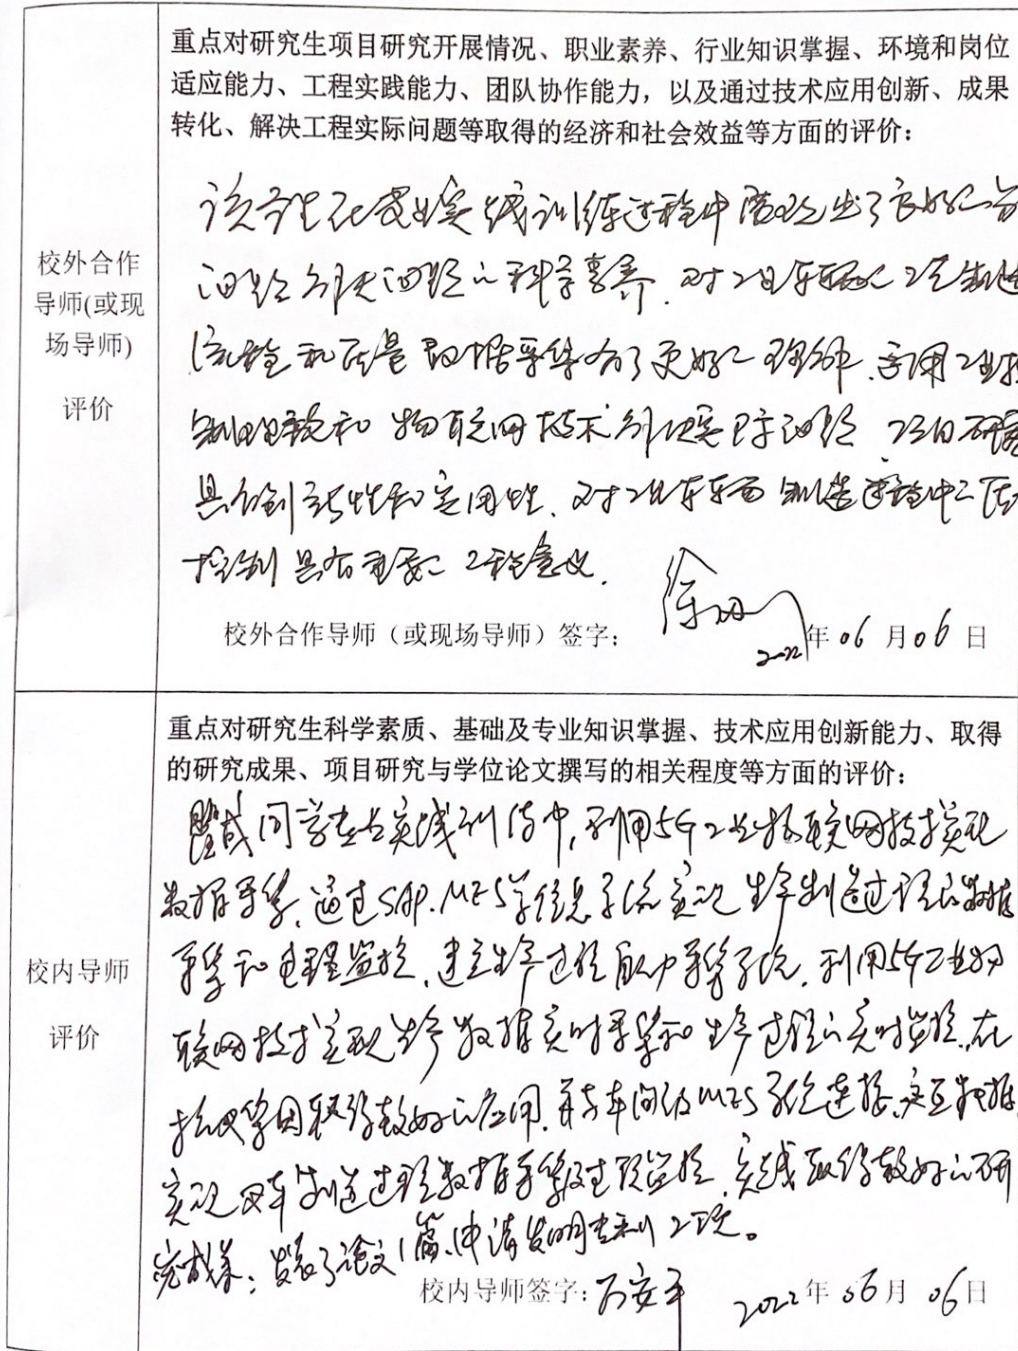 重点对研究生项目研究开展情况、职业素养、行业知识掌握、环境和岗位
适应能力、工程实践能力、团队协作能力，以及通过技术应用创新、成果
转化、解决工程实际问题等取得的经济和社会效益等方面的评价：
校外合作
导师(或现
场导师)
评价
该学生在专业实践训练过程中展现出了良好的分
问题解决问题的科学素养，对工业车辆的工艺制造
流程和质量数据采集有了更好的理解，运用工业控
制理论和物联网技术解决实际问题，项目研究
具有创新性和实用性，对工业车辆制造过程中的质
控制具有重要的工程意义。
校外合作导师（或现场导师）签字：
2022年06月06日
重点对研究生科学素质、基础及专业知识掌握、技术应用创新能力、取得
的研究成果、项目研究与学位论文撰写的相关程度等方面的评价：
校内导师
评价
同学在专业实践训练中，利用5G工业物联网技术实现
数据采集，通过SAP、MES等信息系统实现生产制造过程的数据
采集和管理监控，建立生产过程自动采集系统，利用5G工业物
联网技术实现生产数据实时采集和生产过程的实时监控，在
取得较好的应用，并与车间级MES系统连接，交互数据，
实现叉车制造过程数据采集及过程监控，实践取得较好的研
究成果；发表了论文1篇，申请发明专利2项。
校内导师签字：万安平 2022年06月06日